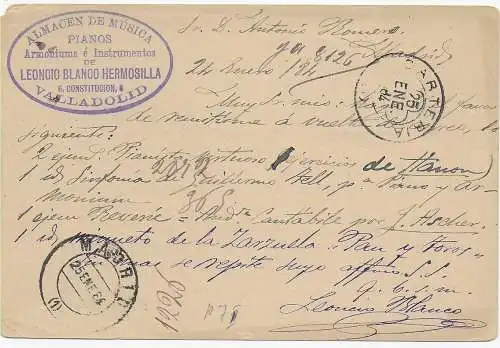 ALMACEN DE MÚSICA
PIANOS
Armoniums é Instrumentos
DE
LEONCIO BLANCO HERMOSILLA
6, CONSTITUCION, 6
VALLADOLID
Sr. D. Antonio Romero
Madrid
24 Enero /84
CARTERIA
25
ENE
84
Muy Sr. mio:
de remitirme á vuelta
siguiente:
2 ejem. Pianista virtuoso Ejercicios de Hanon
1 id Sinfonia de Guillermo Tell, pa. Piano y Ar-
monium
1 ejem Reverie = Cantabile por J. Ascher.
1 id de la Zarzuela "Pan y Toros"
mas se repite suyo affmo S.S.
q. b. s. m.
Leoncio Blanco
MADRID
25 ENE 84
(1)
1225